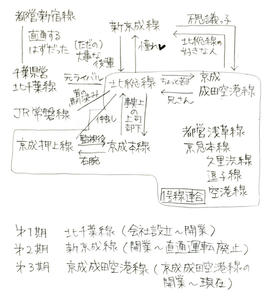 都営新宿線
直通する
はずだった
新京成線
不思議っ子
(ただの)
大事な
後輩
憧れ♥
北総線の
好きな人
千葉県営
北千葉線
元ライバル
北総線
京成
成田空港線
ちょっと苦手
兄さん
馴染み
JR常磐線
仲良し
都営浅草線
京急本線
久里浜線
逗子線
空港線
京成押上線
右腕
京成本線
上司
部下
直通連合
第1期 北千葉線(会社設立~開業)
第2期 新京成線(開業~直通運転廃止)
第3期 京成成田空港線(京成成田空港線の
開業~現在)